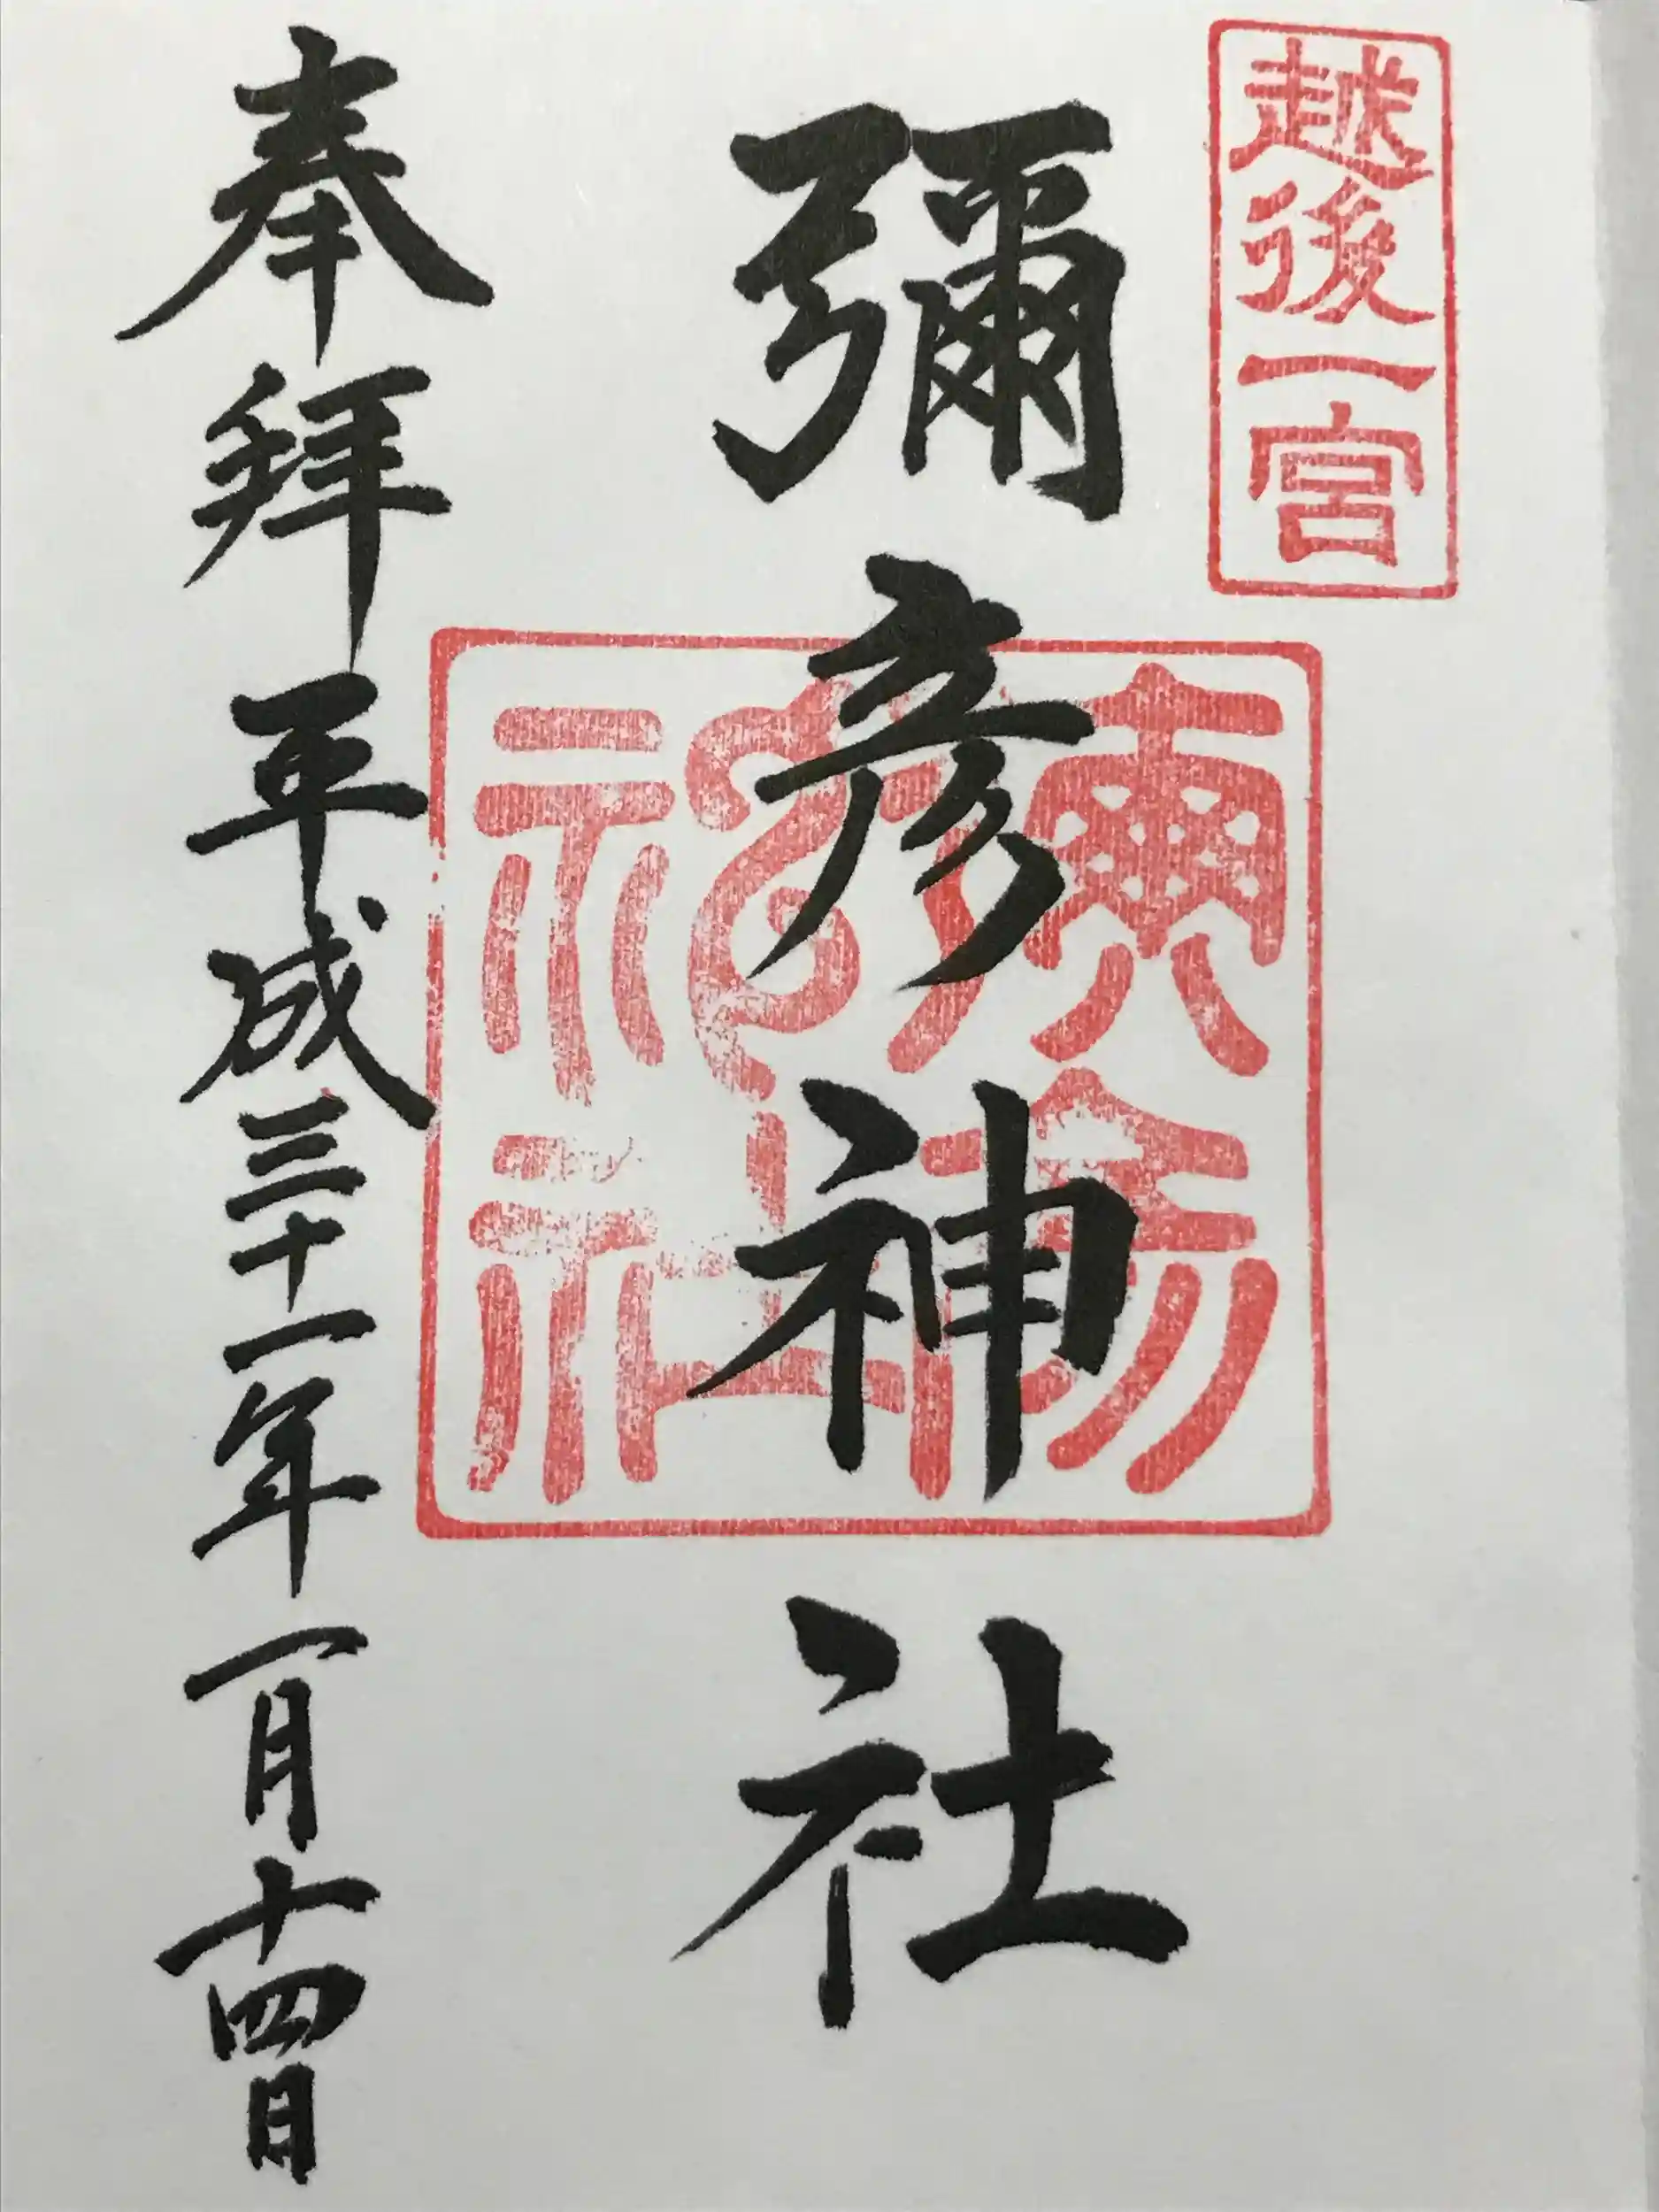 越後一宮
彌彦神社
奉拝 平成三十一年一月十四日